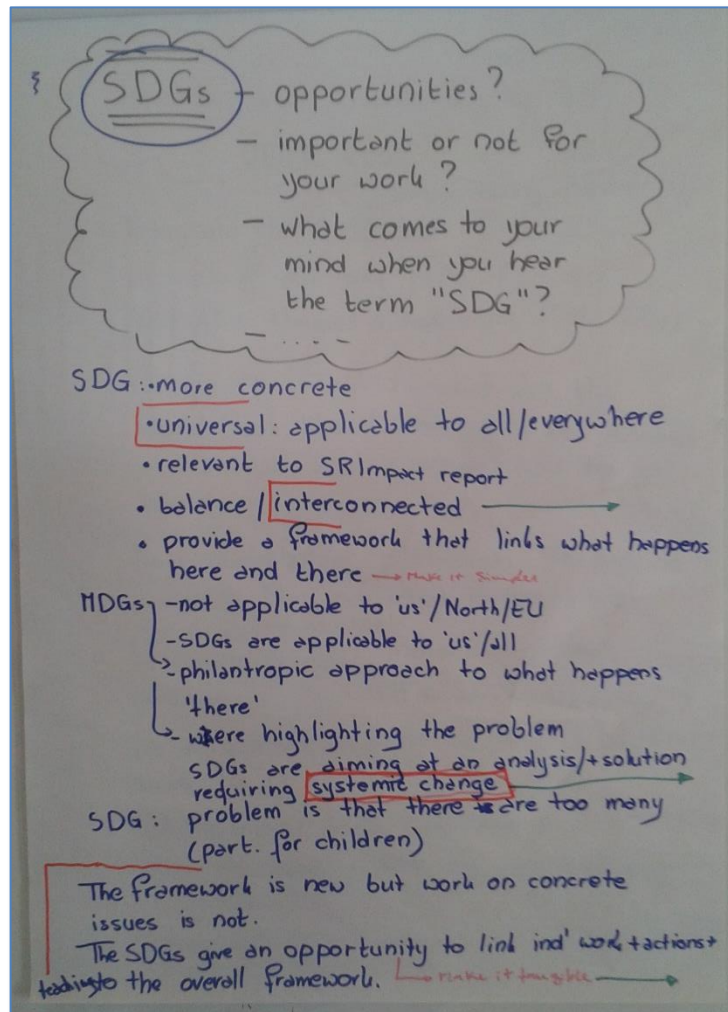 SDGs - opportunities?
- important or not for
your work?
- what comes to your
mind when you hear
the term "SDG"?
- ....
SDG: • more concrete
• universal: applicable to all/everywhere
• relevant to SRImpact report
• balance / interconnected →
• provide a framework that links what happens
here and there → make it simpler
MDGs - not applicable to 'us'/North/EU
- SDGs are applicable to 'us'/all
- philantropic approach to what happens
'there'
- where highlighting the problem
SDGs are aiming at an analysis/+solution
requiring systemic change →
SDG: problem is that there are too many
(part. for children)
The framework is new but work on concrete
issues is not.
The SDGs give an opportunity to link ind' work + actions +
to the overall framework. → make it tangible →